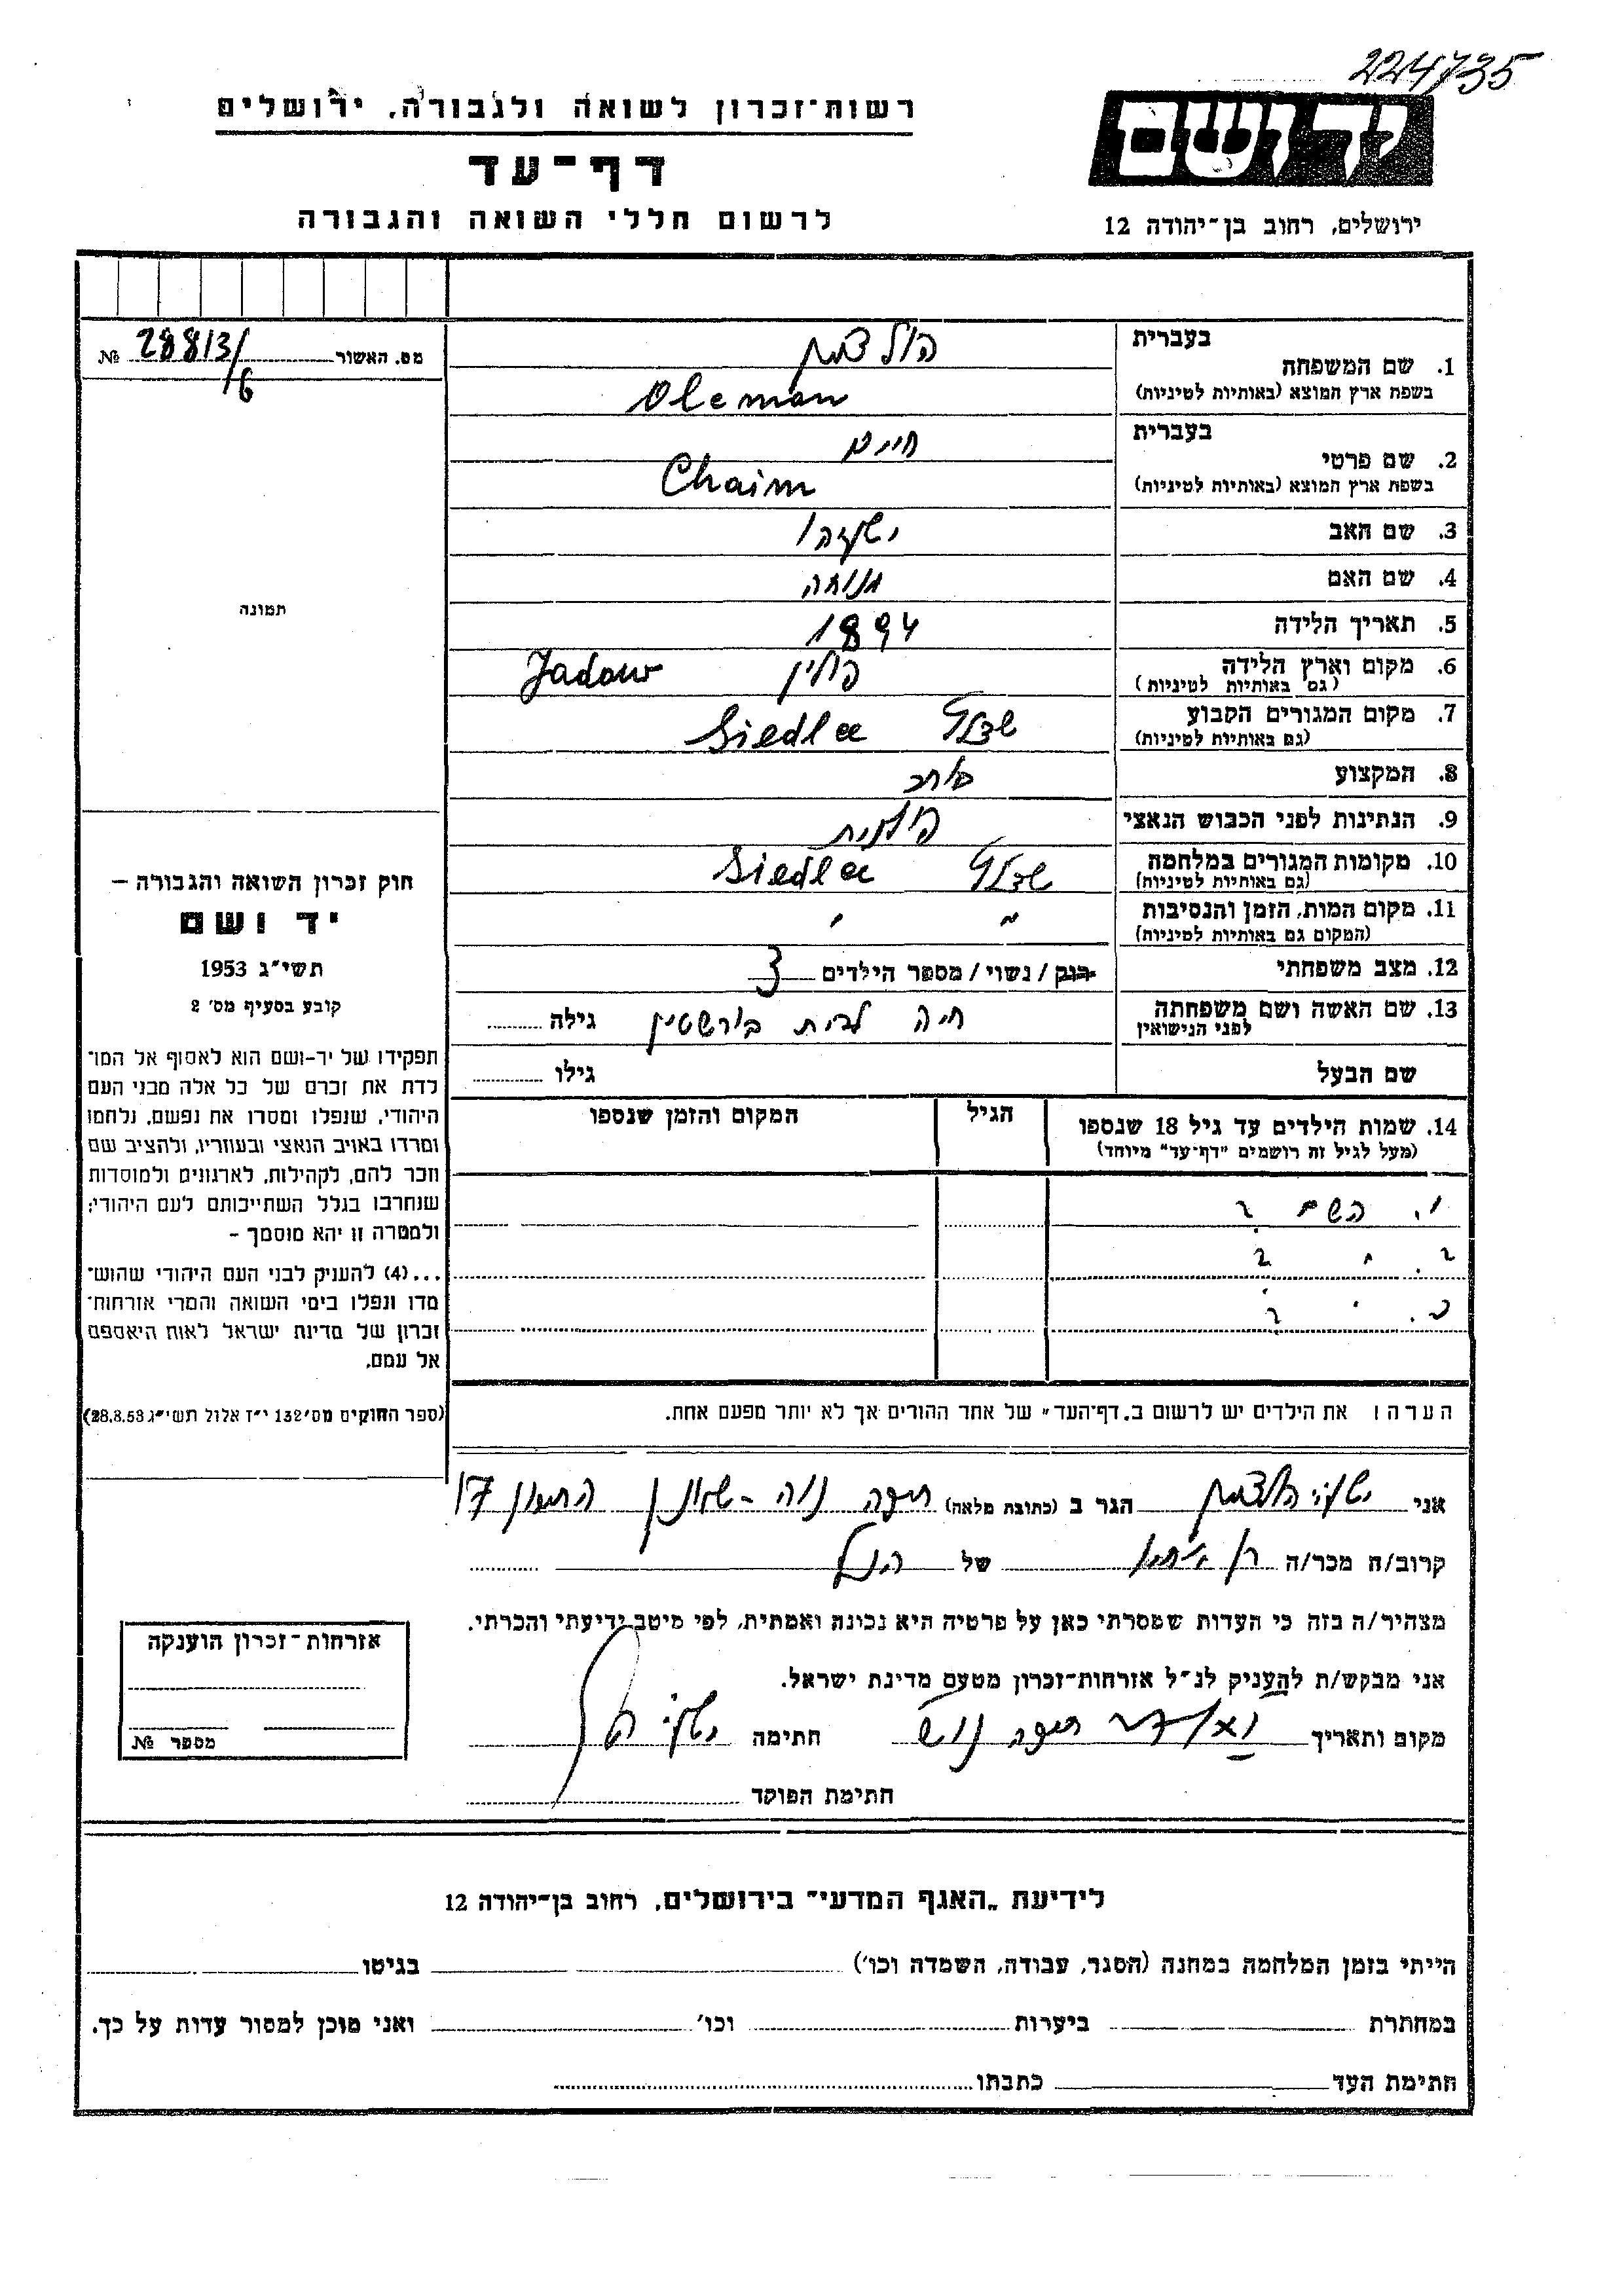 224735
רשות-זכרון לשואה ולגבורה, ירושלים
דף-עד
לרשום חללי השואה והגבורה
יד ושם
ירושלים, רחוב בן-יהודה 12
מס. האשור № 28813/6
תמונה
חוק זכרון השואה והגבורה –
יד ושם
תשי״ג 1953
קובע בסעיף מס' 2
תפקידו של יד-ושם הוא לאסוף אל המו־
לדת את זכרם של כל אלה מבני העם
היהודי, שנפלו ומסרו את נפשם, נלחמו
ומרדו באויב הנאצי ובעוזריו, ולהציב שם
וזכר להם, לקהילות, לארגונים ולמוסדות
שנחרבו בגלל השתייכותם לעם היהודי;
ולמטרה זו יהא מוסמך –
...(4) להעניק לבני העם היהודי שהוש־
מדו ונפלו בימי השואה והמרי אזרחות־
זכרון של מדינת ישראל לאות היאספם
אל עמם.
(ספר החוקים מס' 132 י״ז אלול תשי״ג 28.8.53)
1. שם המשפחה
בעברית הולצמן
בשפת ארץ המוצא (באותיות לטיניות) Oleman
2. שם פרטי
בעברית חיים
בשפת ארץ המוצא (באותיות לטיניות) Chaim
3. שם האב ישעיהו
4. שם האם מנוחה
5. תאריך הלידה 1894
6. מקום וארץ הלידה פולין Jadow
(גם באותיות לטיניות)
7. מקום המגורים הקבוע שדלץ Siedlce
(גם באותיות לטיניות)
8. המקצוע סוחר
9. הנתינות לפני הכבוש הנאצי פולנית
10. מקומות המגורים במלחמה שדלץ Siedlce
(גם באותיות לטיניות)
11. מקום המות, הזמן והנסיבות " "
(המקום גם באותיות לטיניות)
12. מצב משפחתי רווק / נשוי / מספר הילדים 3
13. שם האשה ושם משפחתה חיה לבית בורשטין גילה
לפני הנישואין
שם הבעל גילו
14. שמות הילדים עד גיל 18 שנספו הגיל המקום והזמן שנספו
(מעל לגיל זה רושמים "דף-עד" מיוחד)
1. השם ?
2. " ?
3. " ?
הערה: את הילדים יש לרשום ב„דף-העד" של אחד ההורים אך לא יותר מפעם אחת.
אני ישעיהו הולצמן הגר ב (כתובת מלאה) חיפה נוה-שאנן 17
קרוב/ה מכר/ה בן אחיו של הנ"ל
מצהיר/ה בזה כי העדות שמסרתי כאן על פרטיה היא נכונה ואמתית, לפי מיטב ידיעתי והכרתי.
אני מבקש/ת להעניק לנ״ל אזרחות-זכרון מטעם מדינת ישראל.
מקום ותאריך חיפה חתימה
חתימת הפוקד
אזרחות-זכרון הוענקה
מספר №
לידיעת „האגף המדעי" בירושלים, רחוב בן-יהודה 12
הייתי בזמן המלחמה במחנה (הסגר, עבודה, השמדה וכו') בגיטו
במחתרת ביערות וכו' ואני מוכן למסור עדות על כך.
חתימת העד כתבתו